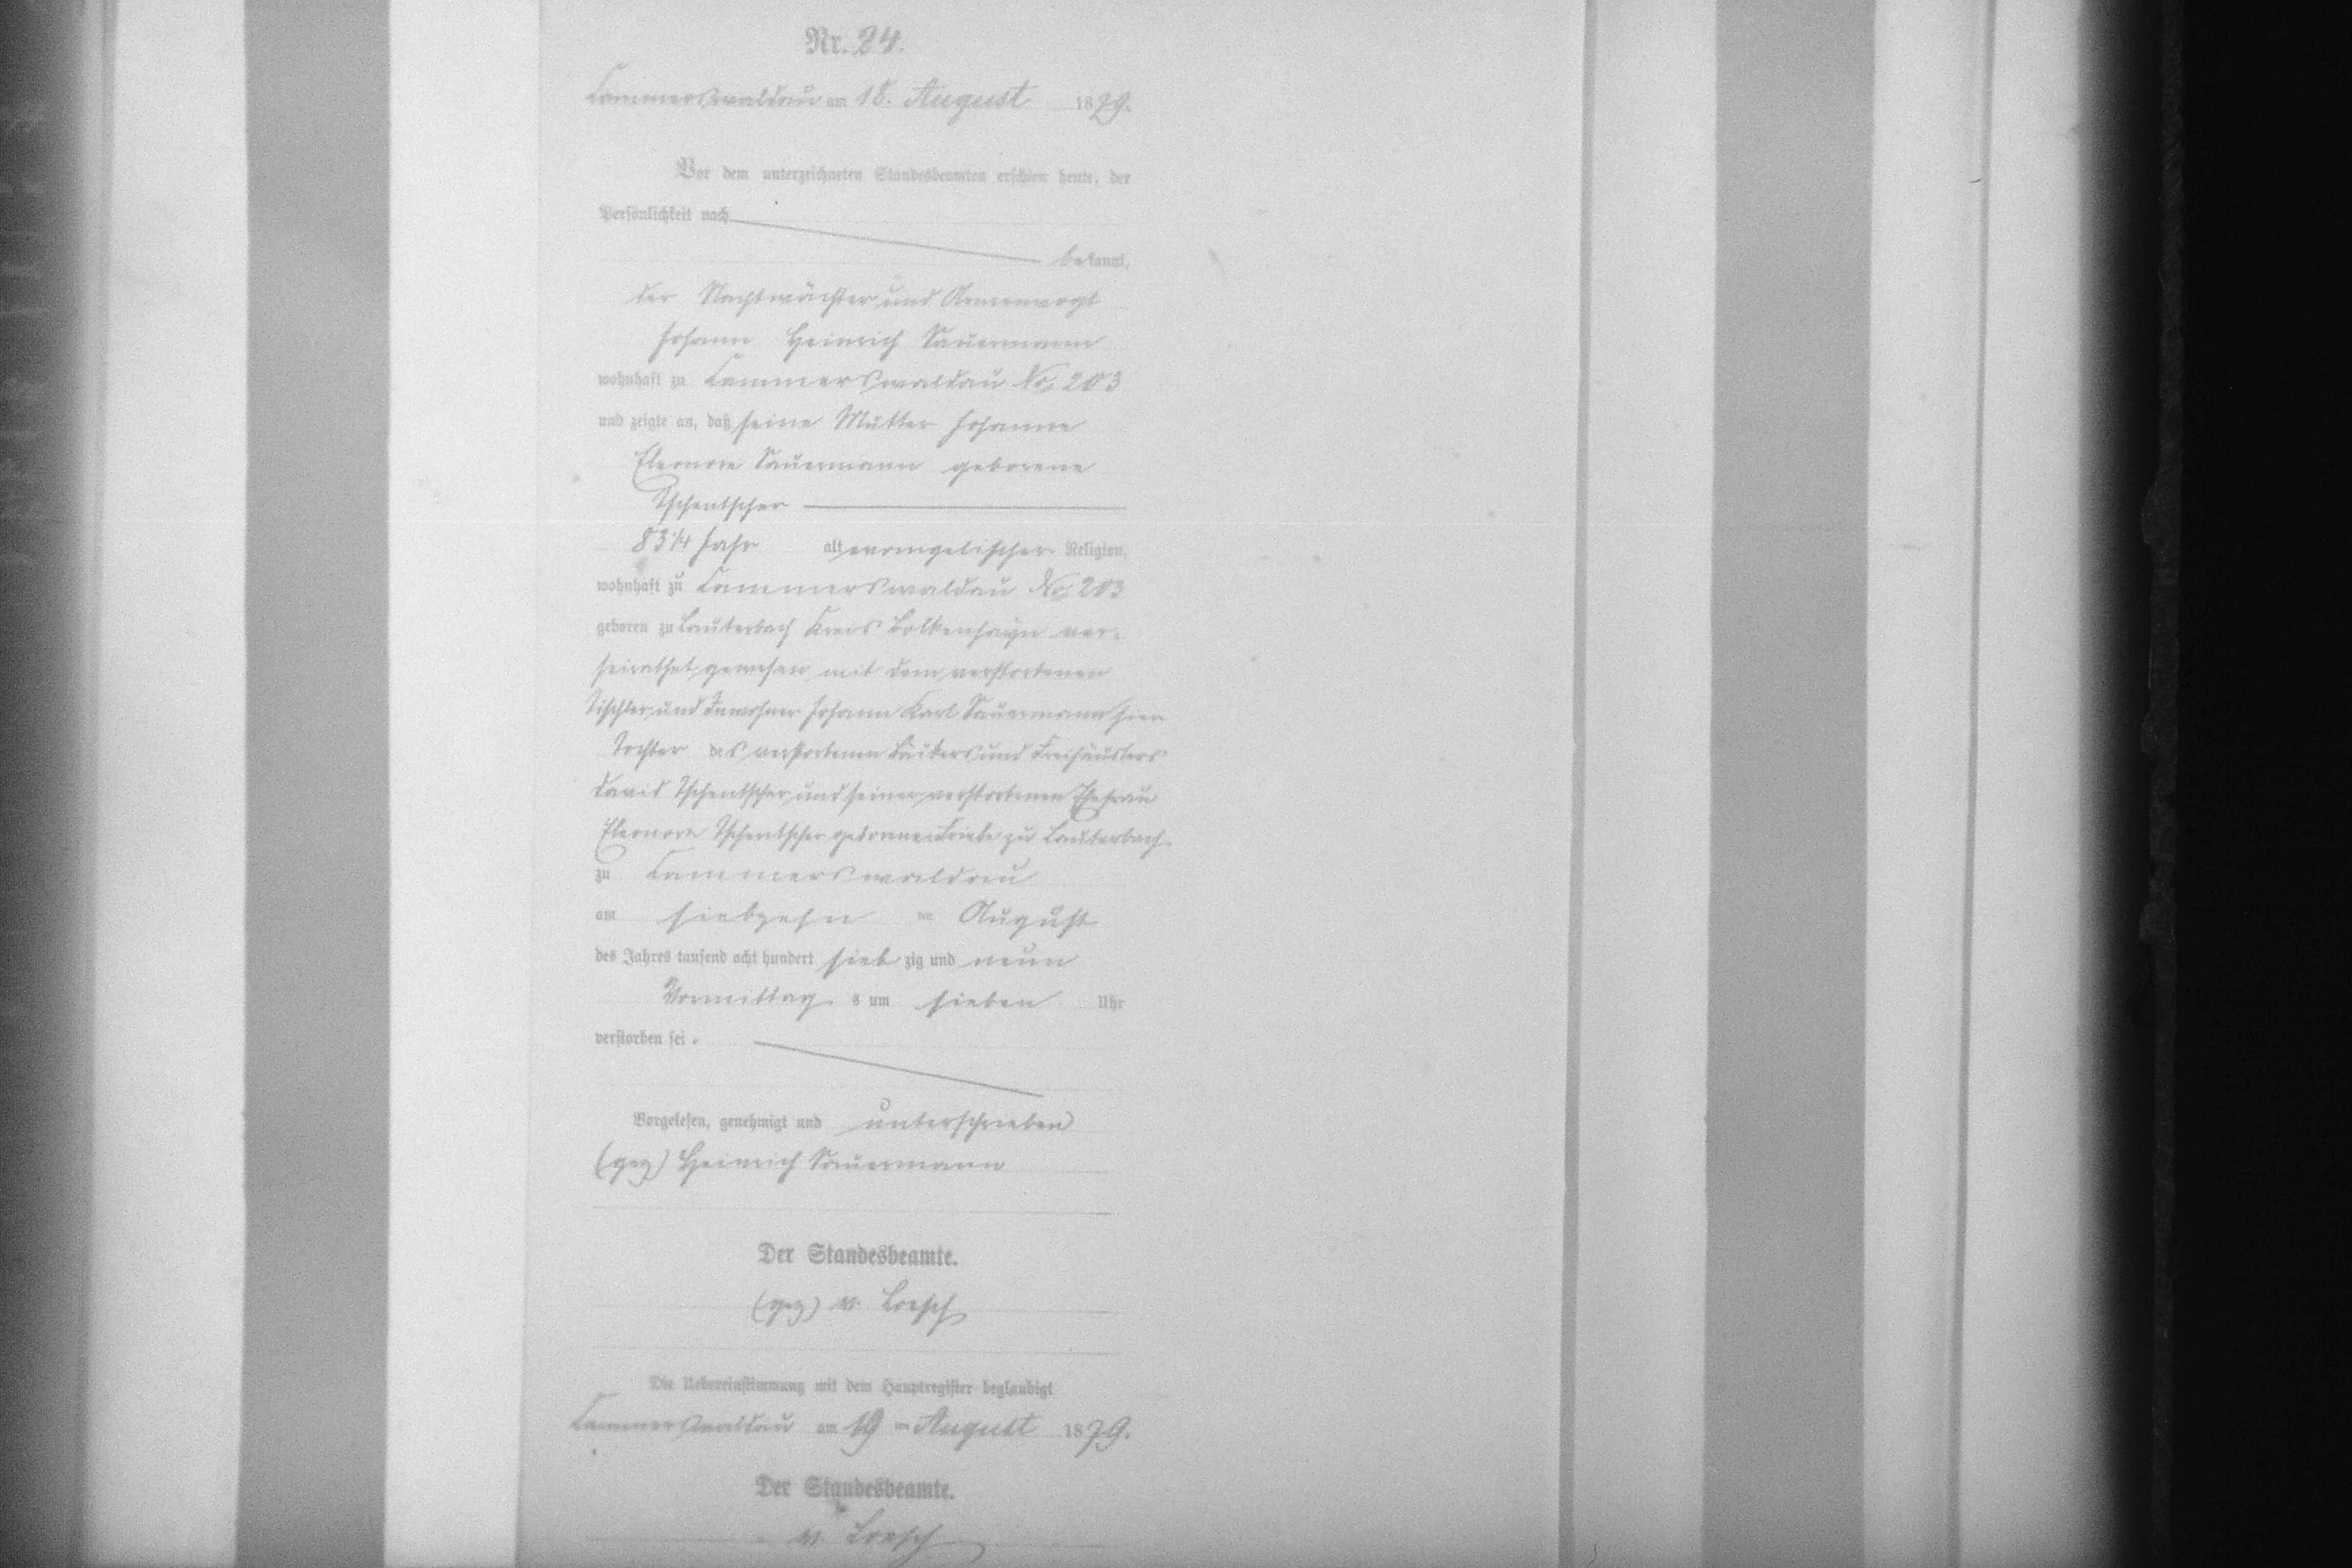 Nr. 24.
Cammerswaldau am 18. August 1879.
Vor dem unterzeichneten Standesbeamten erschien heute, der
Persönlichkeit nach
bekannt,
der Nachtwächter und Armenvogt
Johann Heinrich Sauermann
wohnhaft zu Cammerswaldau No 203
und zeigte an, daß seine Mutter Johanne
Eleonore Sauermann geborene
Tschentscher
83 1/4 Jahr alt, evangelischer Religion,
wohnhaft zu Cammerswaldau No 203
geboren zu Lauterbach Kreis Bolkenhayn ver-
heirathet gewesen mit dem verstorbenen
Tischler und Inwohner Johann Karl Sauermann hier
Tochter des verstorbenen Bäckers und Freihäuslers
David Tschentscher und seiner verstorbenen Ehefrau
Eleonore Tschentscher geborenen Friebe zu Lauterbach
zu Cammerswaldau
am siebzehn ten August
des Jahres tausend acht hundert sieb zig und neun
Vormittag s um sieben Uhr
verstorben sei.
Vorgelesen, genehmigt und unterschrieben
(gez) Heinrich Sauermann
Der Standesbeamte.
(gez) v. Loesch
Die Uebereinstimmung mit dem Hauptregister beglaubigt
Cammerswaldau am 19 ten August 1879.
Der Standesbeamte.
v. Loesch